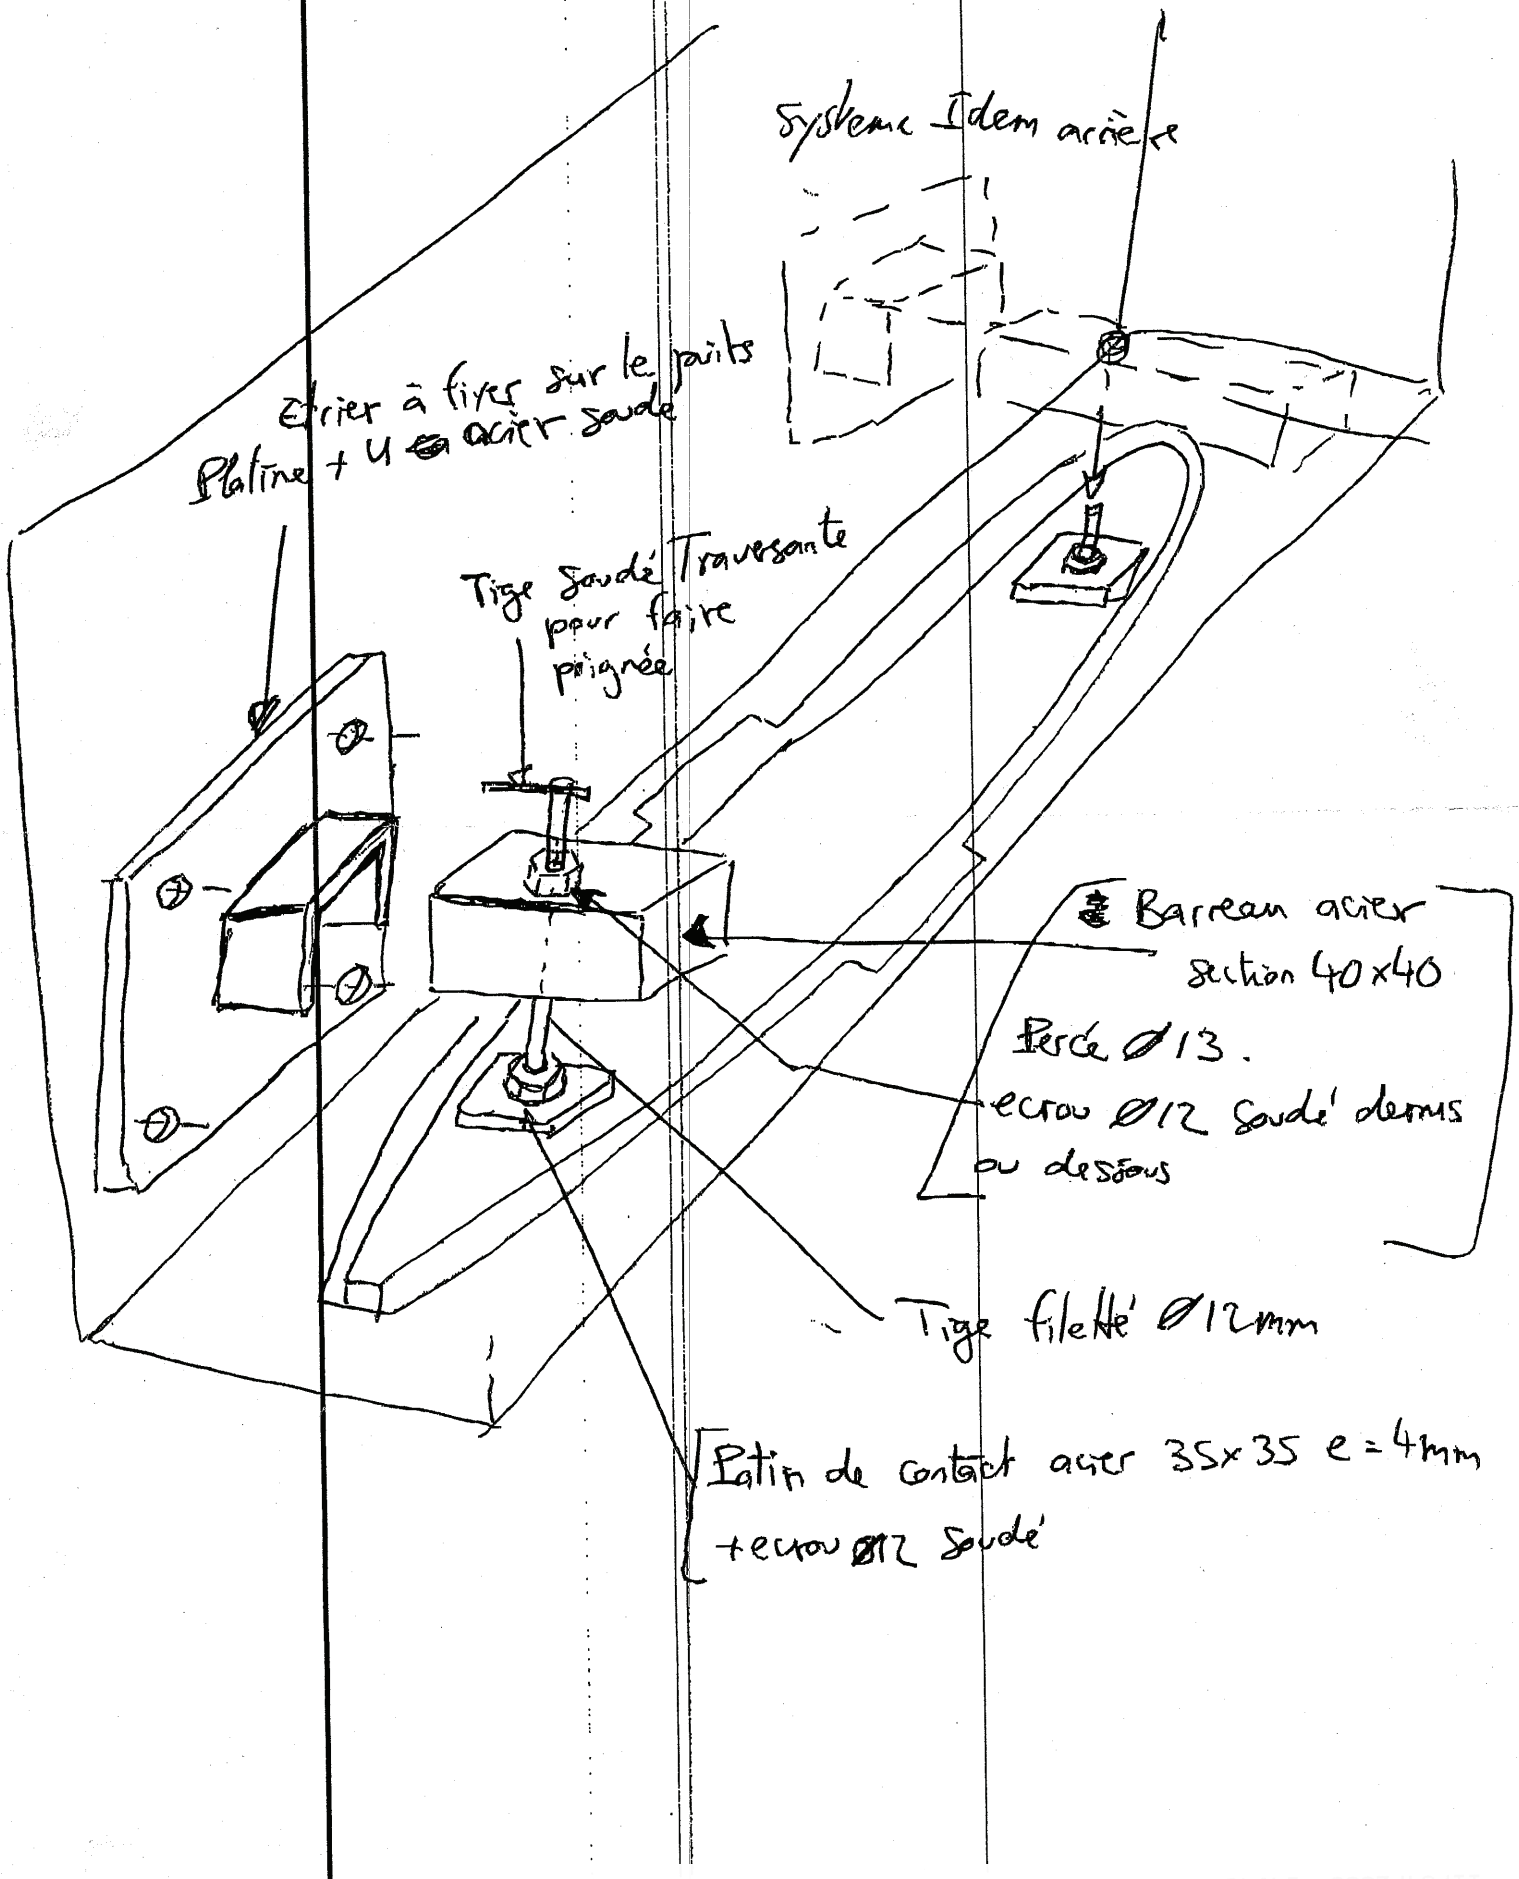 Système Idem arrière
Etrier à fixer sur le puits
Platine + U acier soudé
Tige soudé Traversante
pour faire
poignée
Barreau acier
section 40x40
Percé Ø13.
ecrou Ø12 soudé dessus
ou dessous
Tige filetté Ø12mm
Patin de contact acier 35x35 e=4mm
+ecrou Ø12 soudé